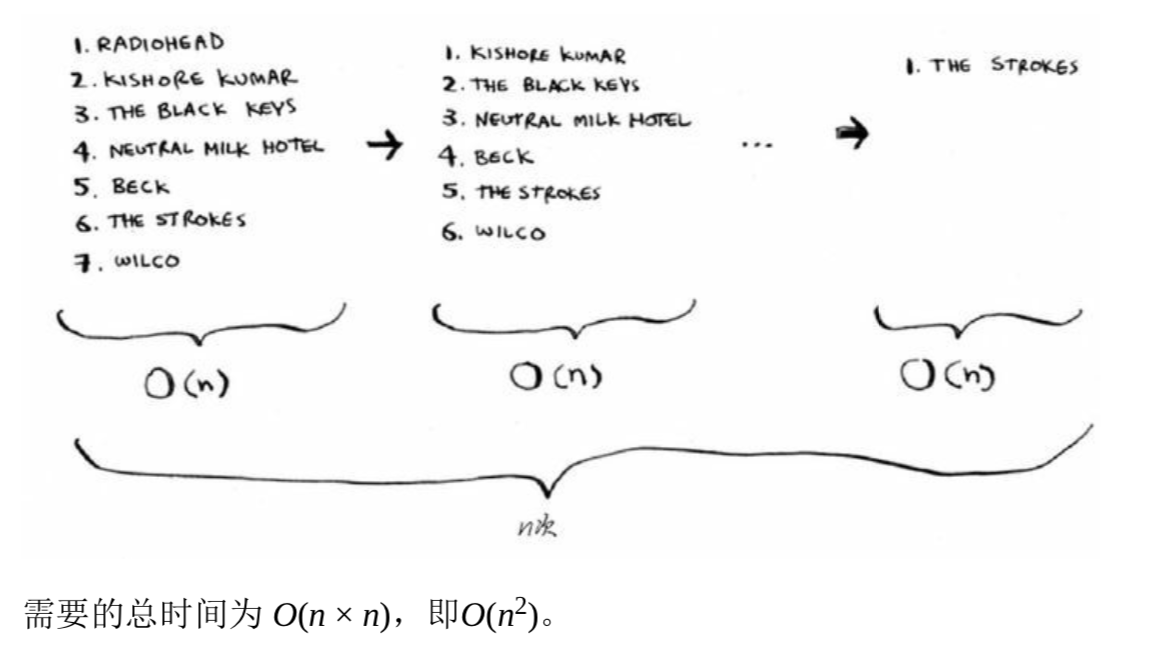 1. RADIOHEAD
2. KISHORE KUMAR
3. THE BLACK KEYS
4. NEUTRAL MILK HOTEL
5. BECK
6. THE STROKES
7. WILCO
→
1. KISHORE KUMAR
2. THE BLACK KEYS
3. NEUTRAL MILK HOTEL
4. BECK
5. THE STROKES
6. WILCO
... →
1. THE STROKES
O(n)
O(n)
O(n)
n次
需要的总时间为 O(n × n)，即O(n²)。